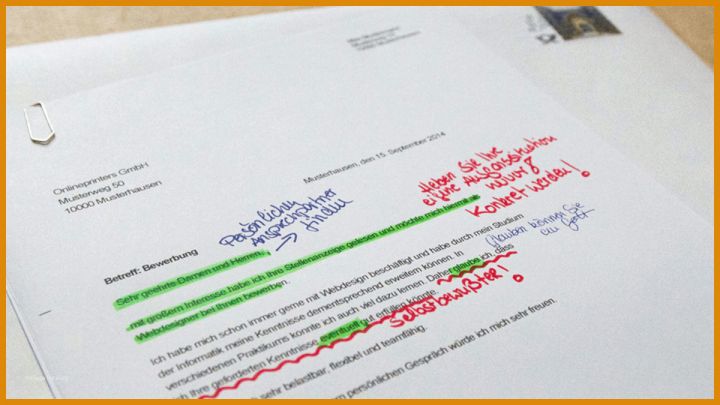 Max Mustermann
Musterhausen
Musterhausen, den 15. September 2014
Onlineprinters GmbH
Musterweg 50
10000 Musterhausen
Heben Sie Ihre
eigene
konkret werden!
Persönlichen
Ansprechpartner
→ finden
Betreff: Bewerbung
Sehr geehrte Damen und Herren,
mit großem Interesse habe ich Ihre Stellenanzeige gelesen und möchte mich hiermit als
Webdesigner bei Ihnen bewerben.
Glauben können Sie
Ich habe mich schon immer gerne mit Webdesign beschäftigt und habe durch mein Studium
der Informatik meine Kenntnisse dementsprechend erweitern können. In
verschiedenen Praktikums konnte ich auch viel dazu lernen. Daher glaube ich, dass
ich Ihre geforderten Kenntnisse eventuell gut erfüllen könnte.
Selbstbewußter!
sehr belastbar, flexibel und teamfähig.
persönlichen Gespräch würde ich mich sehr freuen.